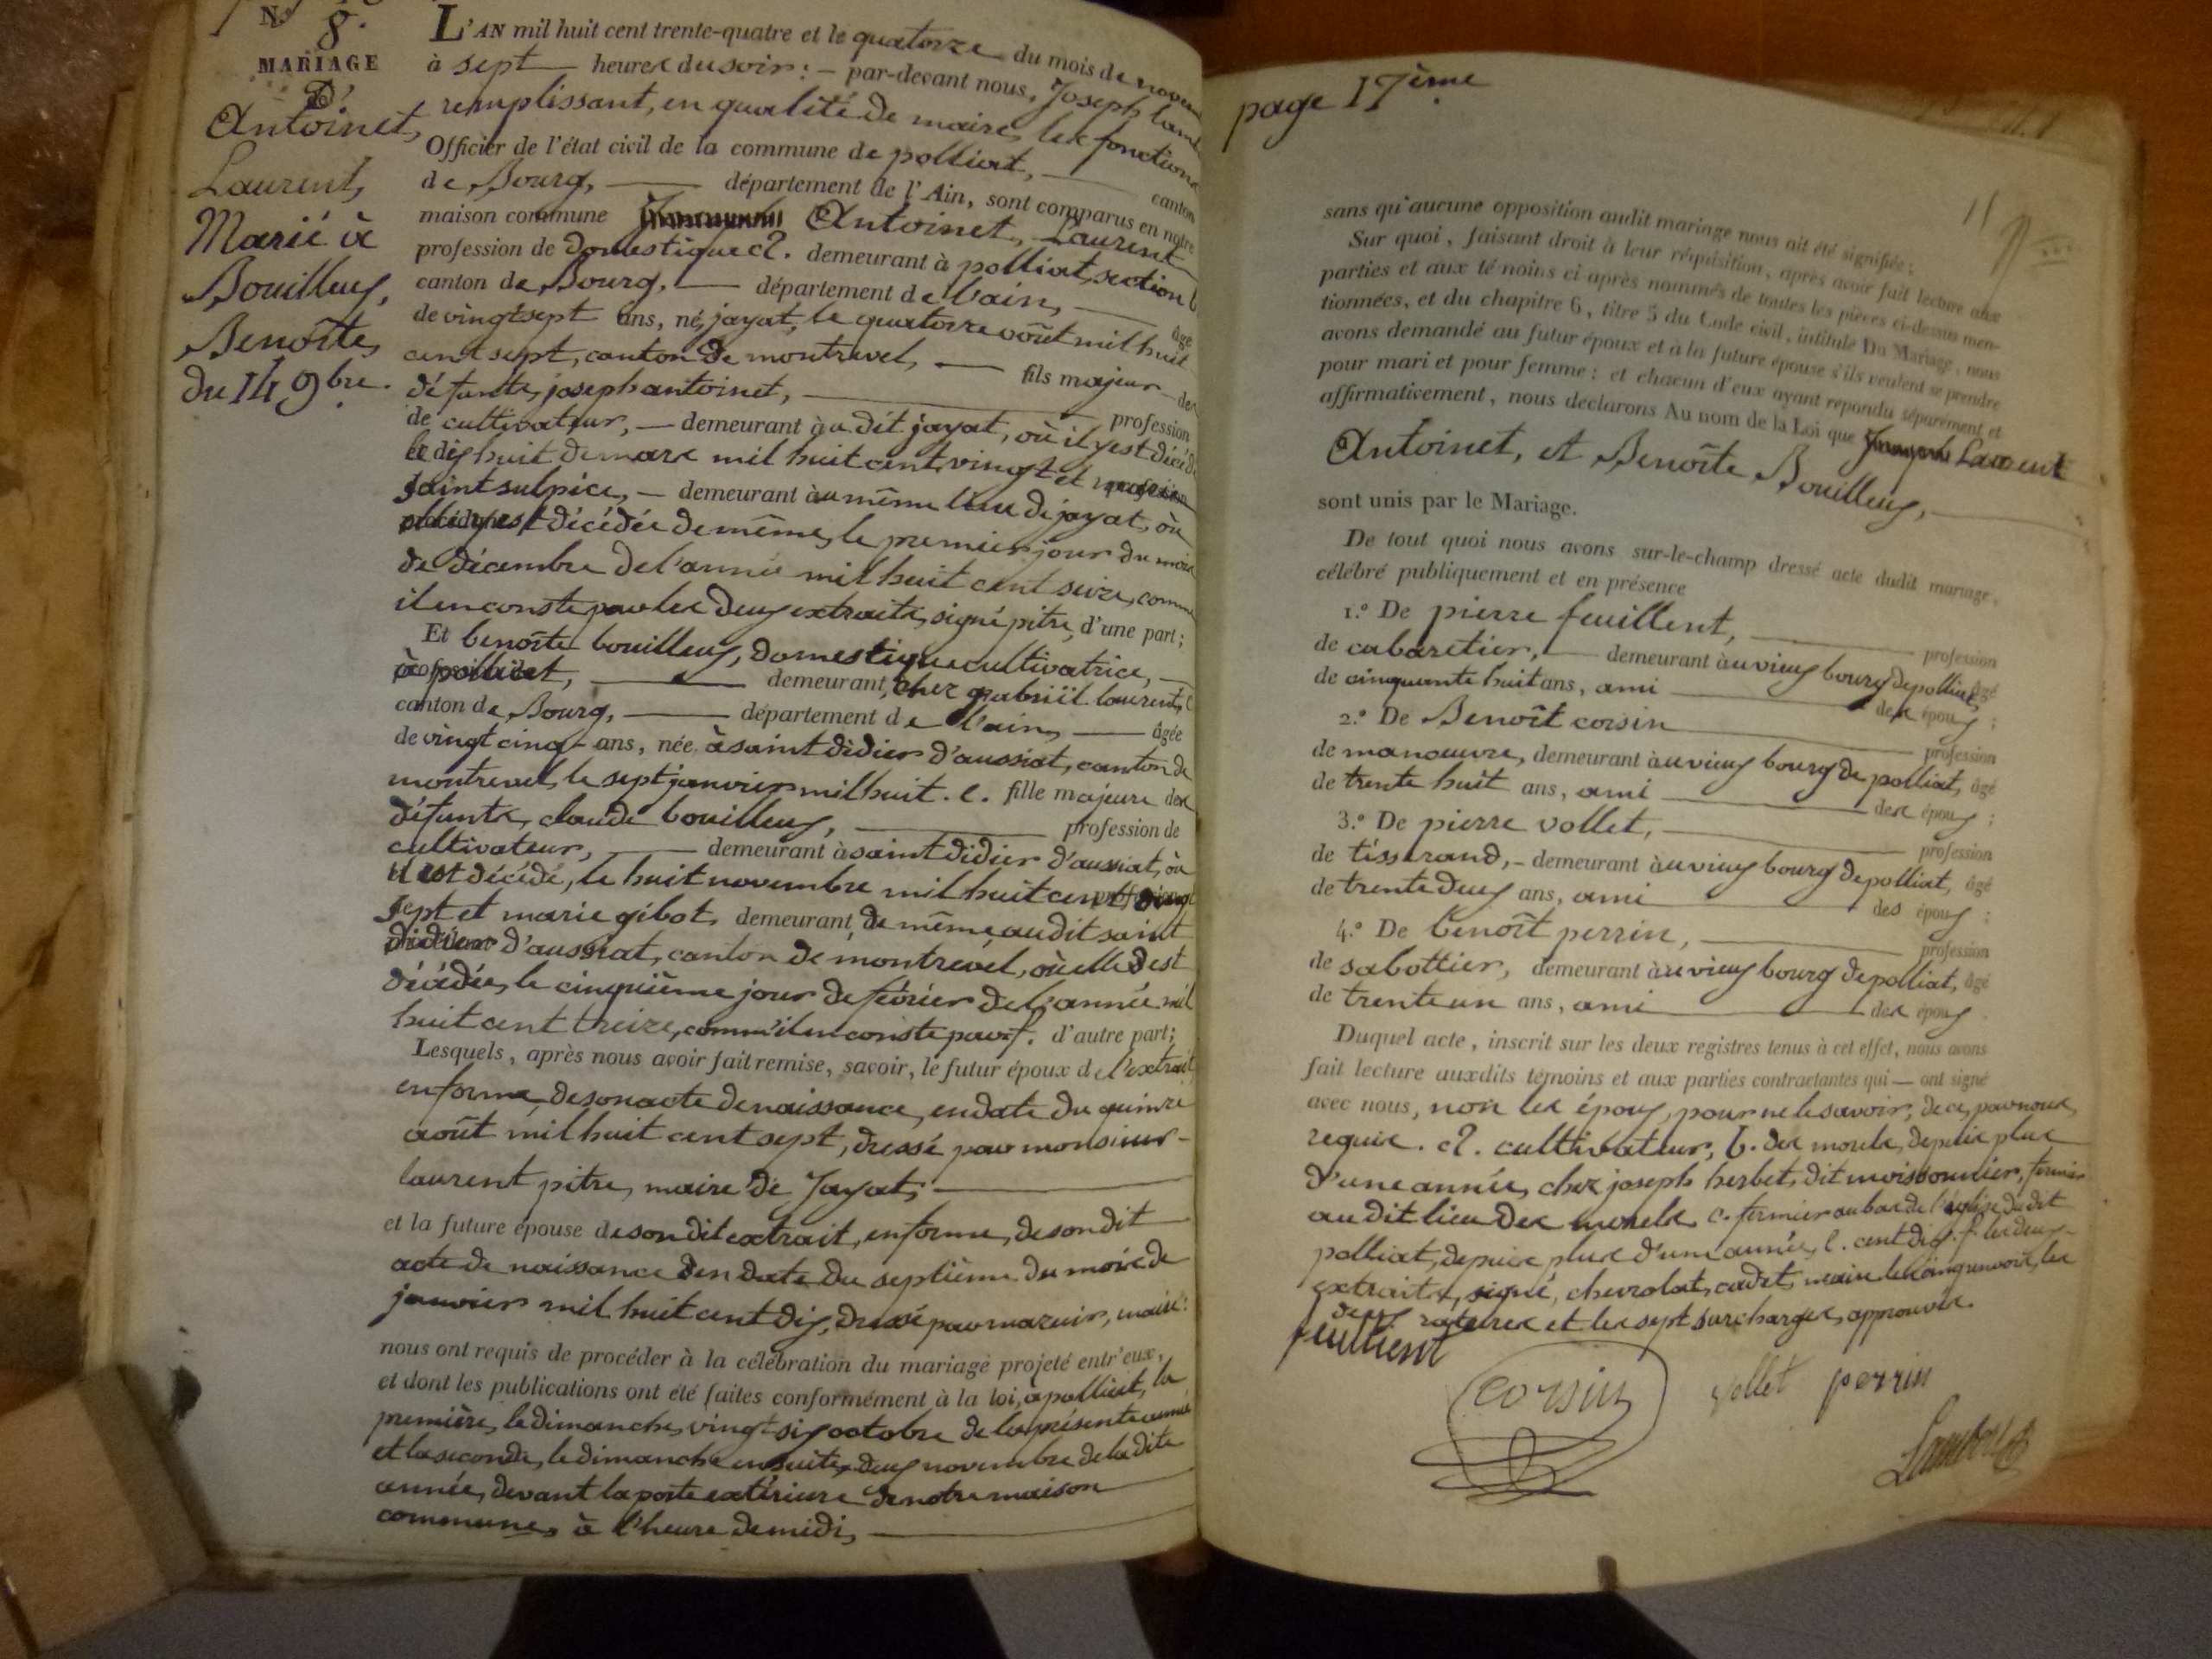 N.º 8.
MARIAGE
D'
Antoinet,
Laurent,
Marié à
Bouilleux,
Benoîte,
du 14 9bre.
L'AN mil huit cent trente-quatre et le quatorze du mois de
à sept heures du soir : — par-devant nous, Joseph
remplissant, en qualité de maire, les fonctions
Officier de l'état civil de la commune de polliat, canton
de Bourg, département de l'Ain, sont comparus en notre
maison commune Antoinet, Laurent
profession de domestique a. demeurant à polliat, section b
canton de Bourg, département de l'ain, âgé
de vingt sept ans, né, jayat, le quatorze août mil huit
cent sept, canton de montrevel, fils majeur des
défunts, joseph antoinet, profession
de cultivateur, — demeurant audit jayat, où il y est décédé
le dix huit de mars mil huit cent vingt et
saint sulpice, — demeurant au même lieu de jayat, où
elle y est décédée de même, le premier jour du mois
de décembre de l'année mil huit cent seize, comme
il en conste par les deux extraits, signé pitre, d'une part ;
Et benoîte bouilleux, domestique cultivatrice,
à polliat, demeurant, chez gabriël laurent, c
canton de Bourg, département de l'ain, âgée
de vingt cinq ans, née à saint didier d'aussiat, canton de
montrevel, le sept janvier mil huit. e. fille majeure des
défunts, claude bouilleux, profession de
cultivateur, demeurant à saint didier d'aussiat, où
il est décédé, le huit novembre mil huit cent vingt
sept et marie gibot, demeurant, de même audit saint
didier d'aussiat, canton de montrevel, où elle est
décédée, le cinquième jour de février de l'année mil
huit cent treize, comme il en conste par f. d'autre part ;
Lesquels, après nous avoir fait remise, savoir, le futur époux de l'extrait,
en forme, de son acte de naissance, en date du quinze
août mil huit cent sept, dressé par monsieur
laurent pitre, maire de Jayat,
et la future épouse de son dit extrait, en forme, de son dit
acte de naissance en date du septième du mois de
janvier mil huit cent dix, dressé par mazuir, maire :
nous ont requis de procéder à la célébration du mariage projeté entr'eux,
et dont les publications ont été faites conformément à la loi, à polliat, la
première, le dimanche, vingt six octobre de la présente année
et la seconde, le dimanche ensuite, deux novembre de ladite
année, devant la porte extérieure de notre maison
commune, à l'heure de midi,
page 17ème
sans qu'aucune opposition audit mariage nous ait été signifiée ;
Sur quoi, faisant droit à leur réquisition, après avoir fait lecture aux
parties et aux témoins ci-après nommés de toutes les pièces ci-dessus men-
tionnées, et du chapitre 6, titre 5 du Code civil, intitulé Du Mariage, nous
avons demandé au futur époux et à la future épouse s'ils veulent se prendre
pour mari et pour femme : et chacun d'eux ayant répondu séparément et
affirmativement, nous déclarons Au nom de la Loi que Laurent
Antoinet, et Benoîte Bouilleux,
sont unis par le Mariage.
De tout quoi nous avons sur-le-champ dressé acte dudit mariage,
célébré publiquement et en présence
1.º De pierre feuillent, profession
de cabaretier, demeurant au vieux bourg de polliat, âgé
de cinquante huit ans, ami des époux ;
2.º De Benoît corsin profession
de manoeuvre, demeurant au vieux bourg de polliat, âgé
de trente huit ans, ami des époux ;
3.º De pierre vollet, profession
de tisserand, — demeurant au vieux bourg de polliat, âgé
de trente deux ans, ami des époux ;
4.º De benoît perrin, profession
de sabottier, demeurant au vieux bourg de polliat, âgé
de trente un ans, ami des époux
Duquel acte, inscrit sur les deux registres tenus à cet effet, nous avons
fait lecture auxdits témoins et aux parties contractantes qui — ont signé
avec nous, non les époux, pour ne le savoir, de ce, par nous,
requis. a. cultivateur, b. des depuis plus
d'une année, chez joseph herbet, dit moissonnier, fermier
audit lieu des c. fermier au bas de l'église dudit
polliat, depuis plus d'une année, e. cent dix. f. les deux
extraits, signé, chevrolat, cadet, maire les cinq renvois, les
deux ratures et les sept surcharges, approuvés.
feuillent
corsin vollet perrin